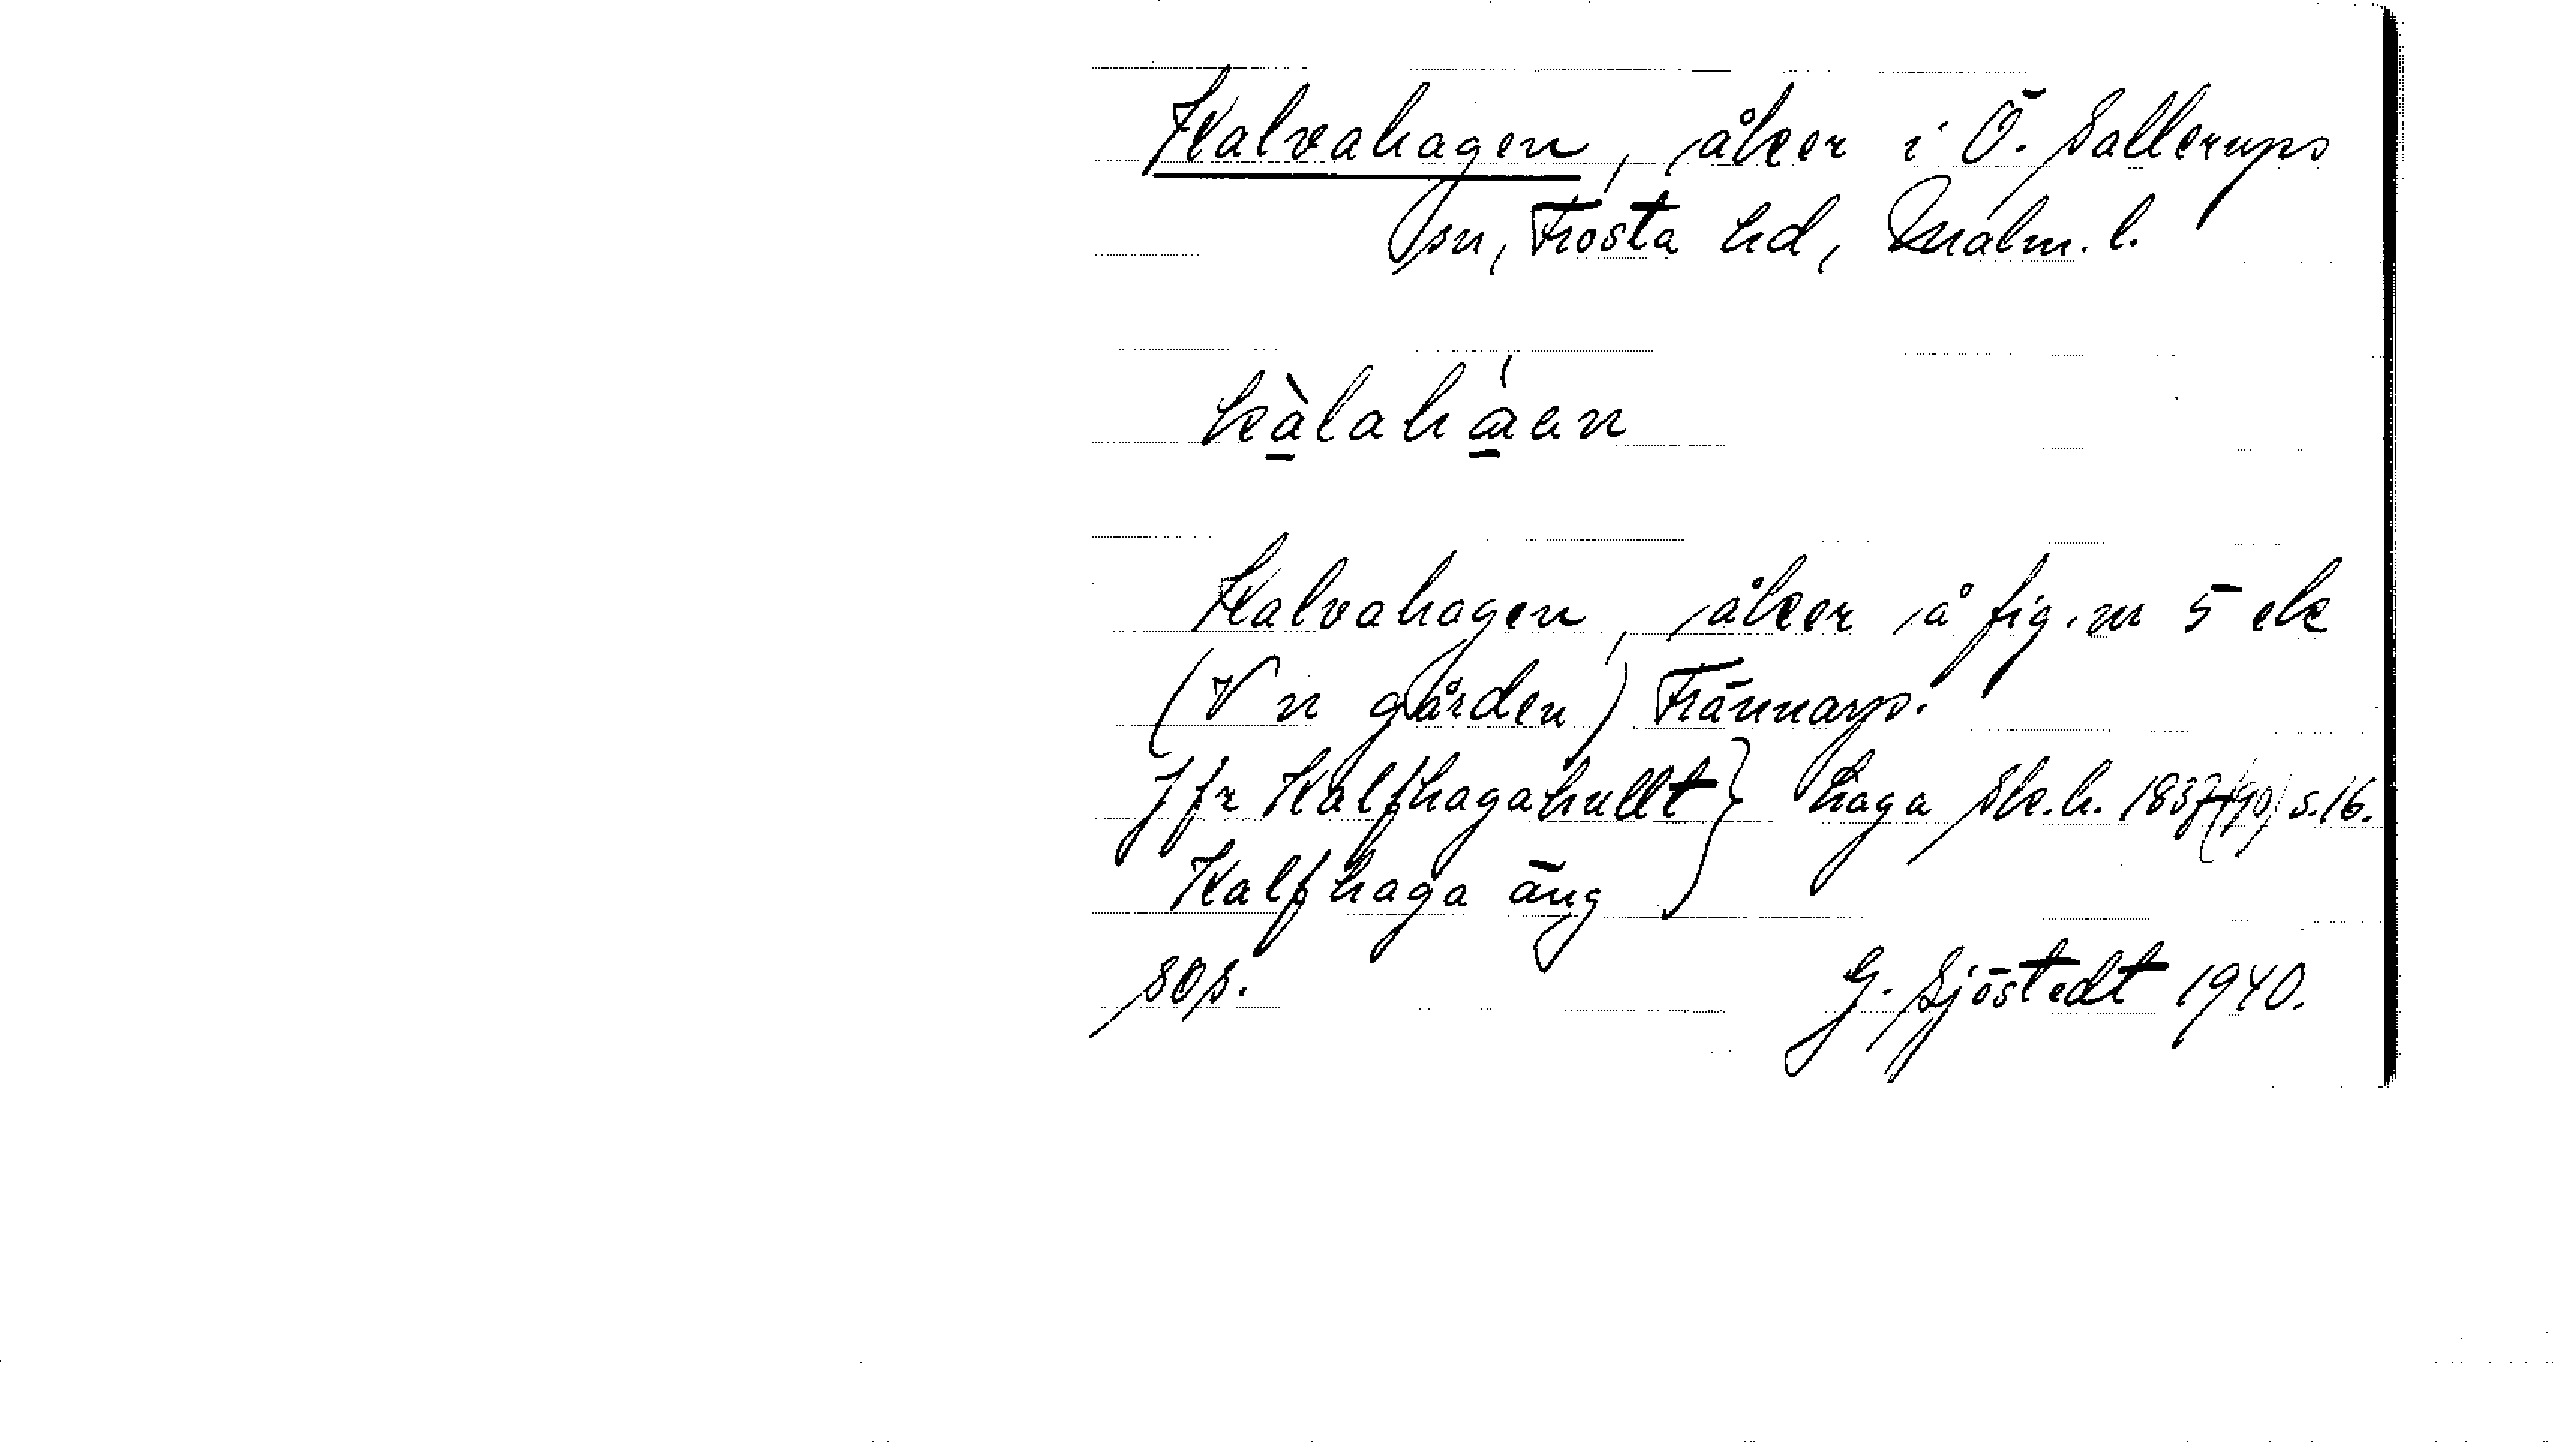 Kalvahagen, åker i Ö. Sallerups
sn, Frosta hd, Malm. l.
kàlaháen
Kalvahagen, åker å fig. nr 5 ek
(V n gården) Frännarp.
Jfr Kalfhagahullt } haga Sk. h. 1837 s. 16.
Kalfhaga äng
sos.
G. Sjöstedt 1940.